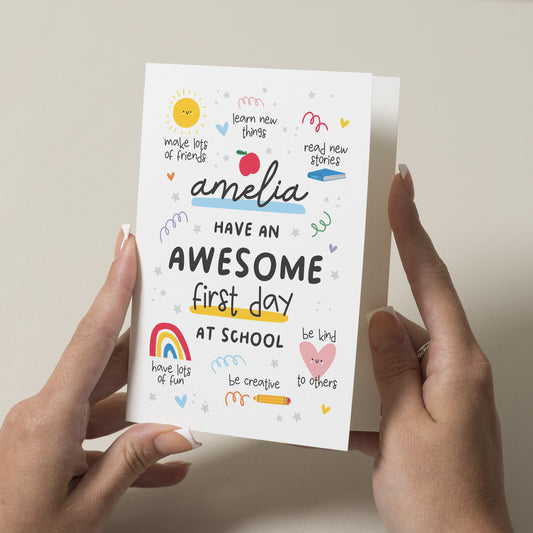 learn new
things
make lots
of friends
read new
stories
amelia
HAVE AN
AWESOME
first day
AT SCHOOL
be kind
to others
have lots
of fun
be creative